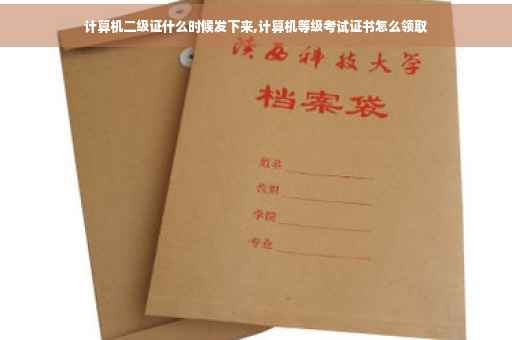 计算机二级证什么时候发下来,计算机等级考试证书怎么领取
陕西科技大学
档案袋
姓名
班级
学院
专业